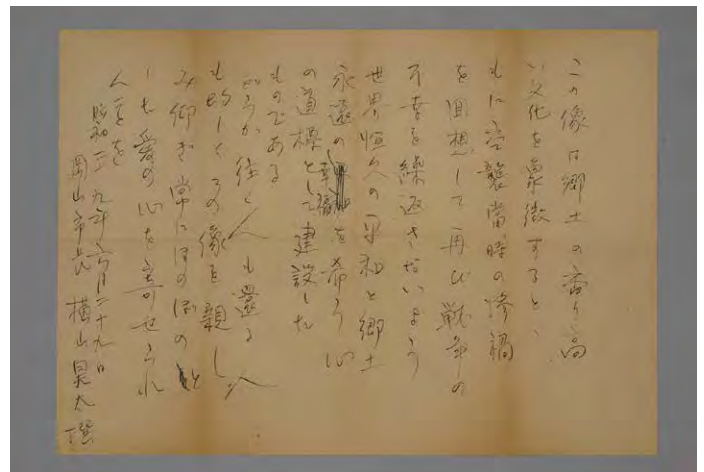 この像は郷土の香り高
い文化を象徴すると、
もに空襲当時の惨禍
を回想して再び戦争の
不幸を繰返さないよう
世界恒久の平和と郷土
永遠の幸福を希う心
の道標として建設した
ものである
どうか往く人も還る人
も時としてこの像を親し
み仰ぎ常にほのぼのと
しも愛の心を寄せられ
んことを
昭和二十九年六月二十九日
岡山市長 横山昊太 撰